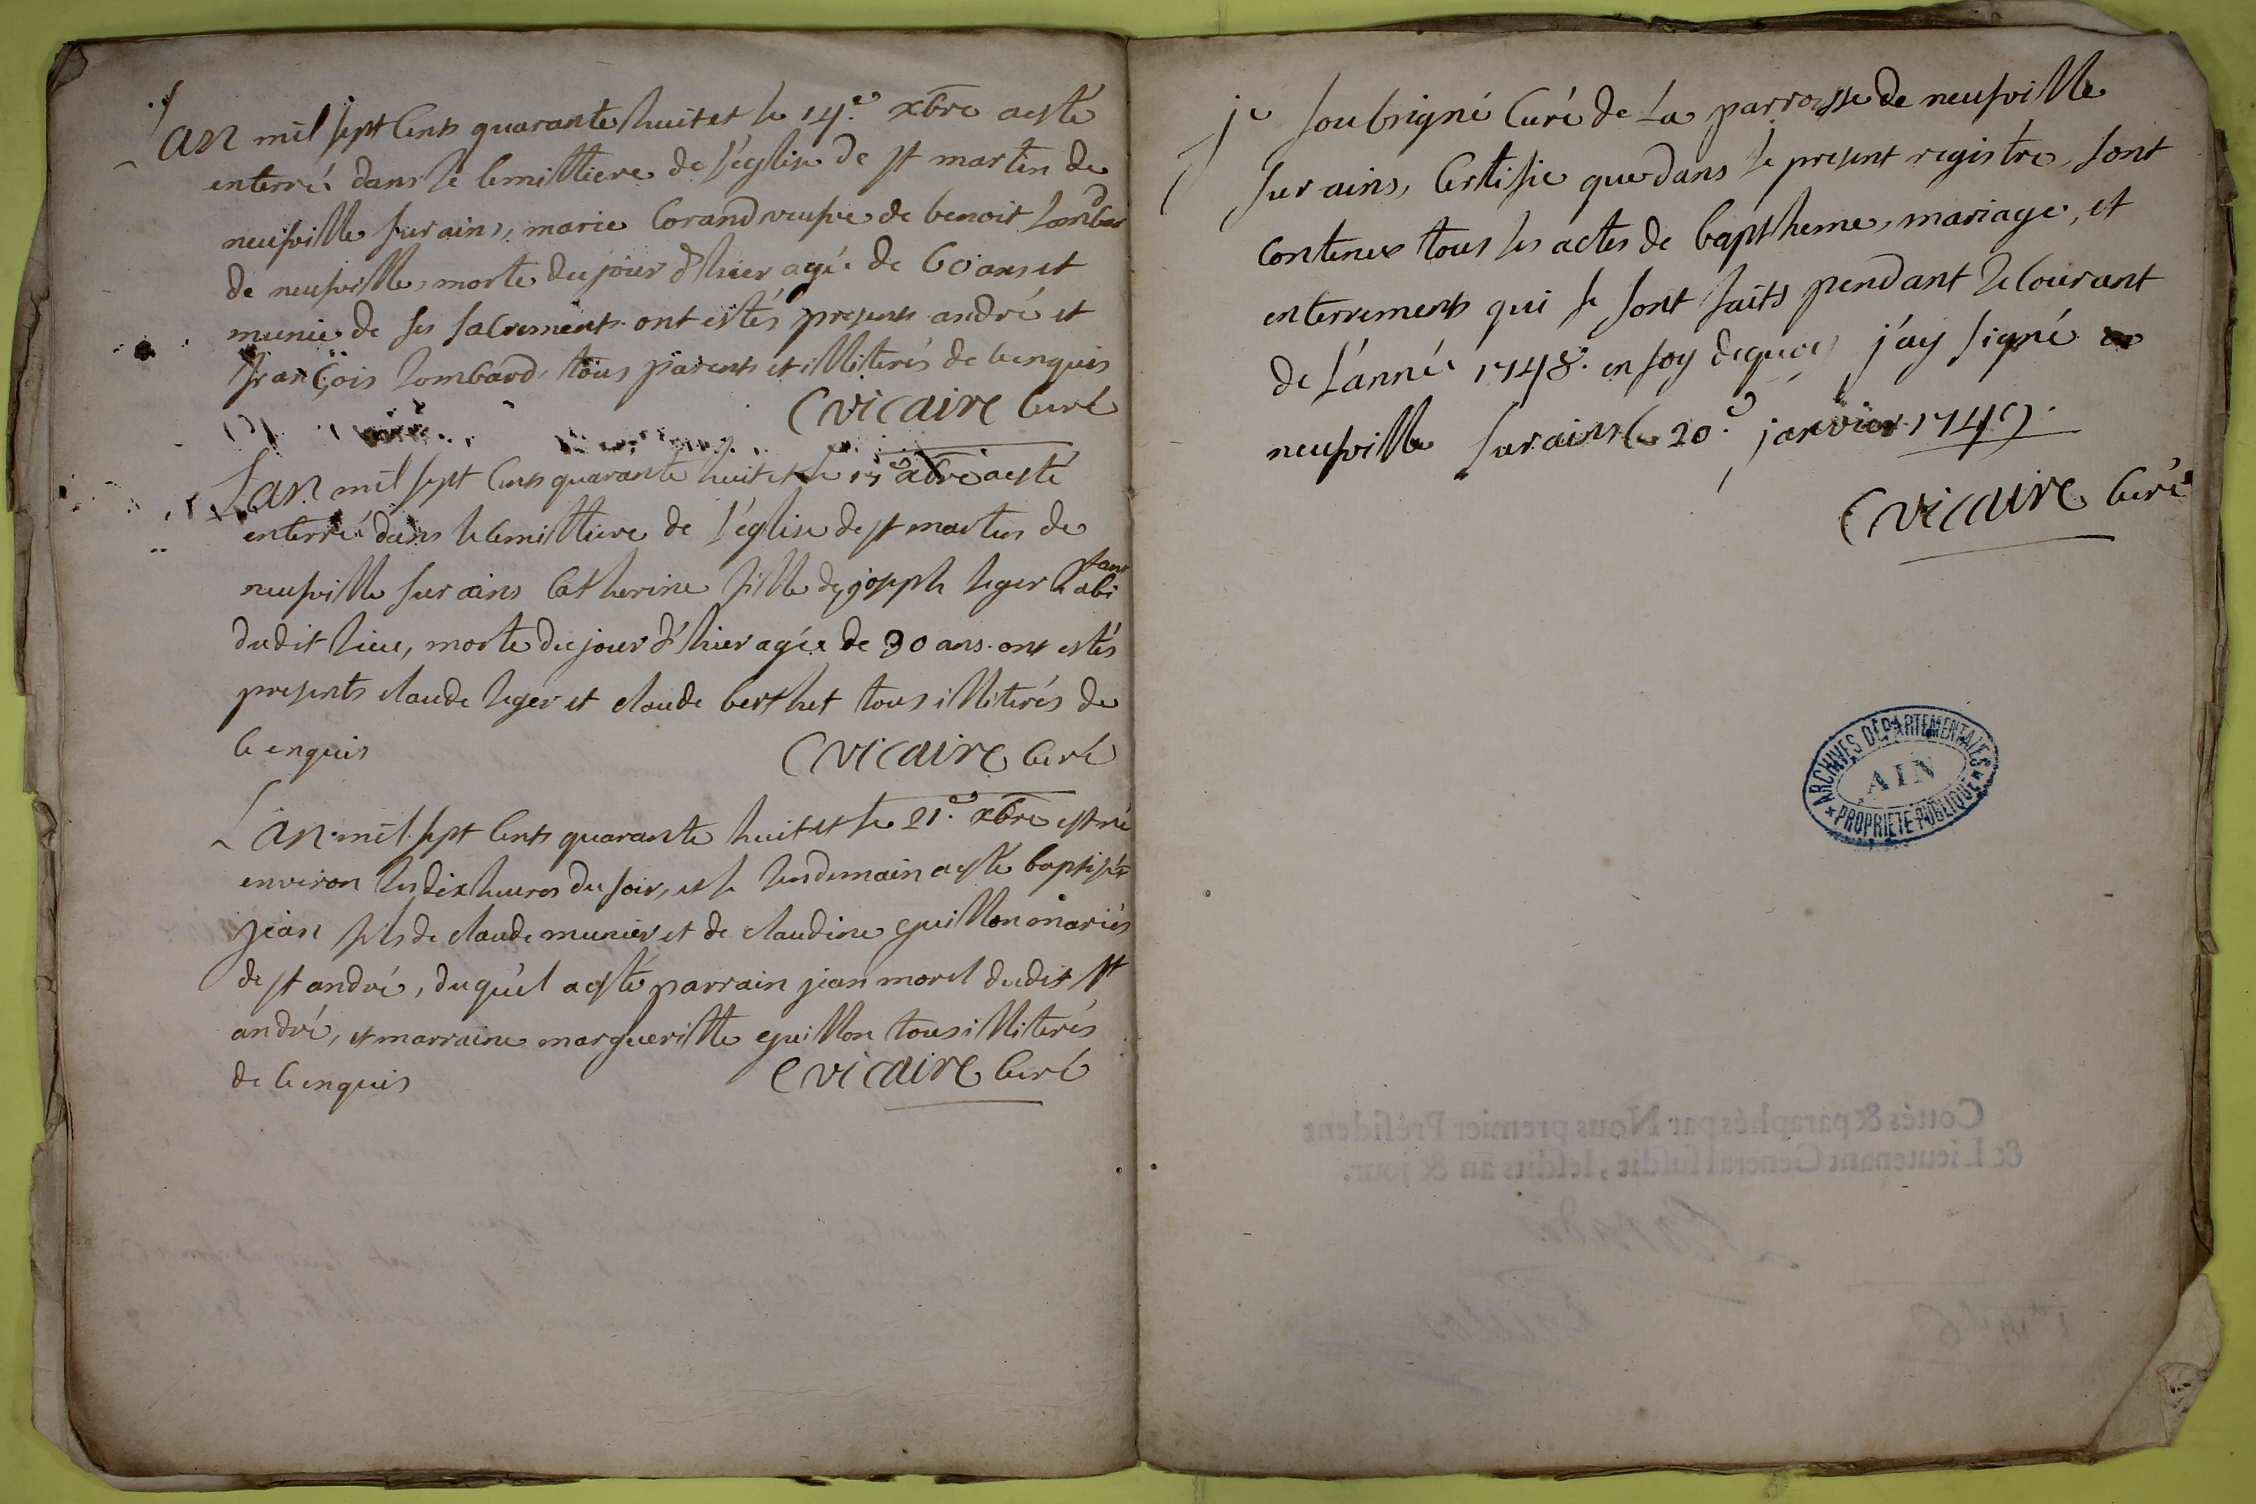 Lan mil sept cents quarante huit et le 14.e xbre a esté
enterré dans le cemittiere de l'église de st martin de
neufville sur ains, marie Corand veufve de benoit Lombard
de neufville, morte du jour d'hier agée de 60 ans et
munie de ses sacrements. ont estés presents andré et
françois Lombard, tous parents et illiterés de ce enquis
C vicaire curé
Lan mil sept cents quarante huit et le 17e xbre a esté
enterré dans le cemittiere de l'église de st martin de
neufville sur ains Catherine fille de joseph leger habitant
dudit lieu, morte du jour d'hier agée de 30 ans. ont estés
presents claude leger et claude berthet tous illiterés de
ce enquis
C vicaire curé
Lan mil sept cents quarante huit et le 21.e xbre est né
environ les dix heures du soir, et le lendemain a esté baptisé
jean fils de claude munier et de claudine guillon mariés
de st andré, duquel a esté parrain jean morel dudit st
andré, et marraine margueritte guillon tous illiterés
de ce enquis
C vicaire curé
je soubsigné Curé de La parroisse de neufville
sur ains, Certifie que dans le present registre, sont
contenus tous les actes de baptheme, mariage, et
enterrements qui se sont faits pendant le courant
de l'année 1748. en foy dequoy j'ay signé a
neufville sur ains le 20.e janvier 1749.
C vicaire Curé
ARCHIVES DÉPARTEMENTALES
AIN
PROPRIÉTÉ PUBLIQUE
Cottés & paraphés par Nous premier Président
& Lieutenant General susdit, lesdits an & jour.